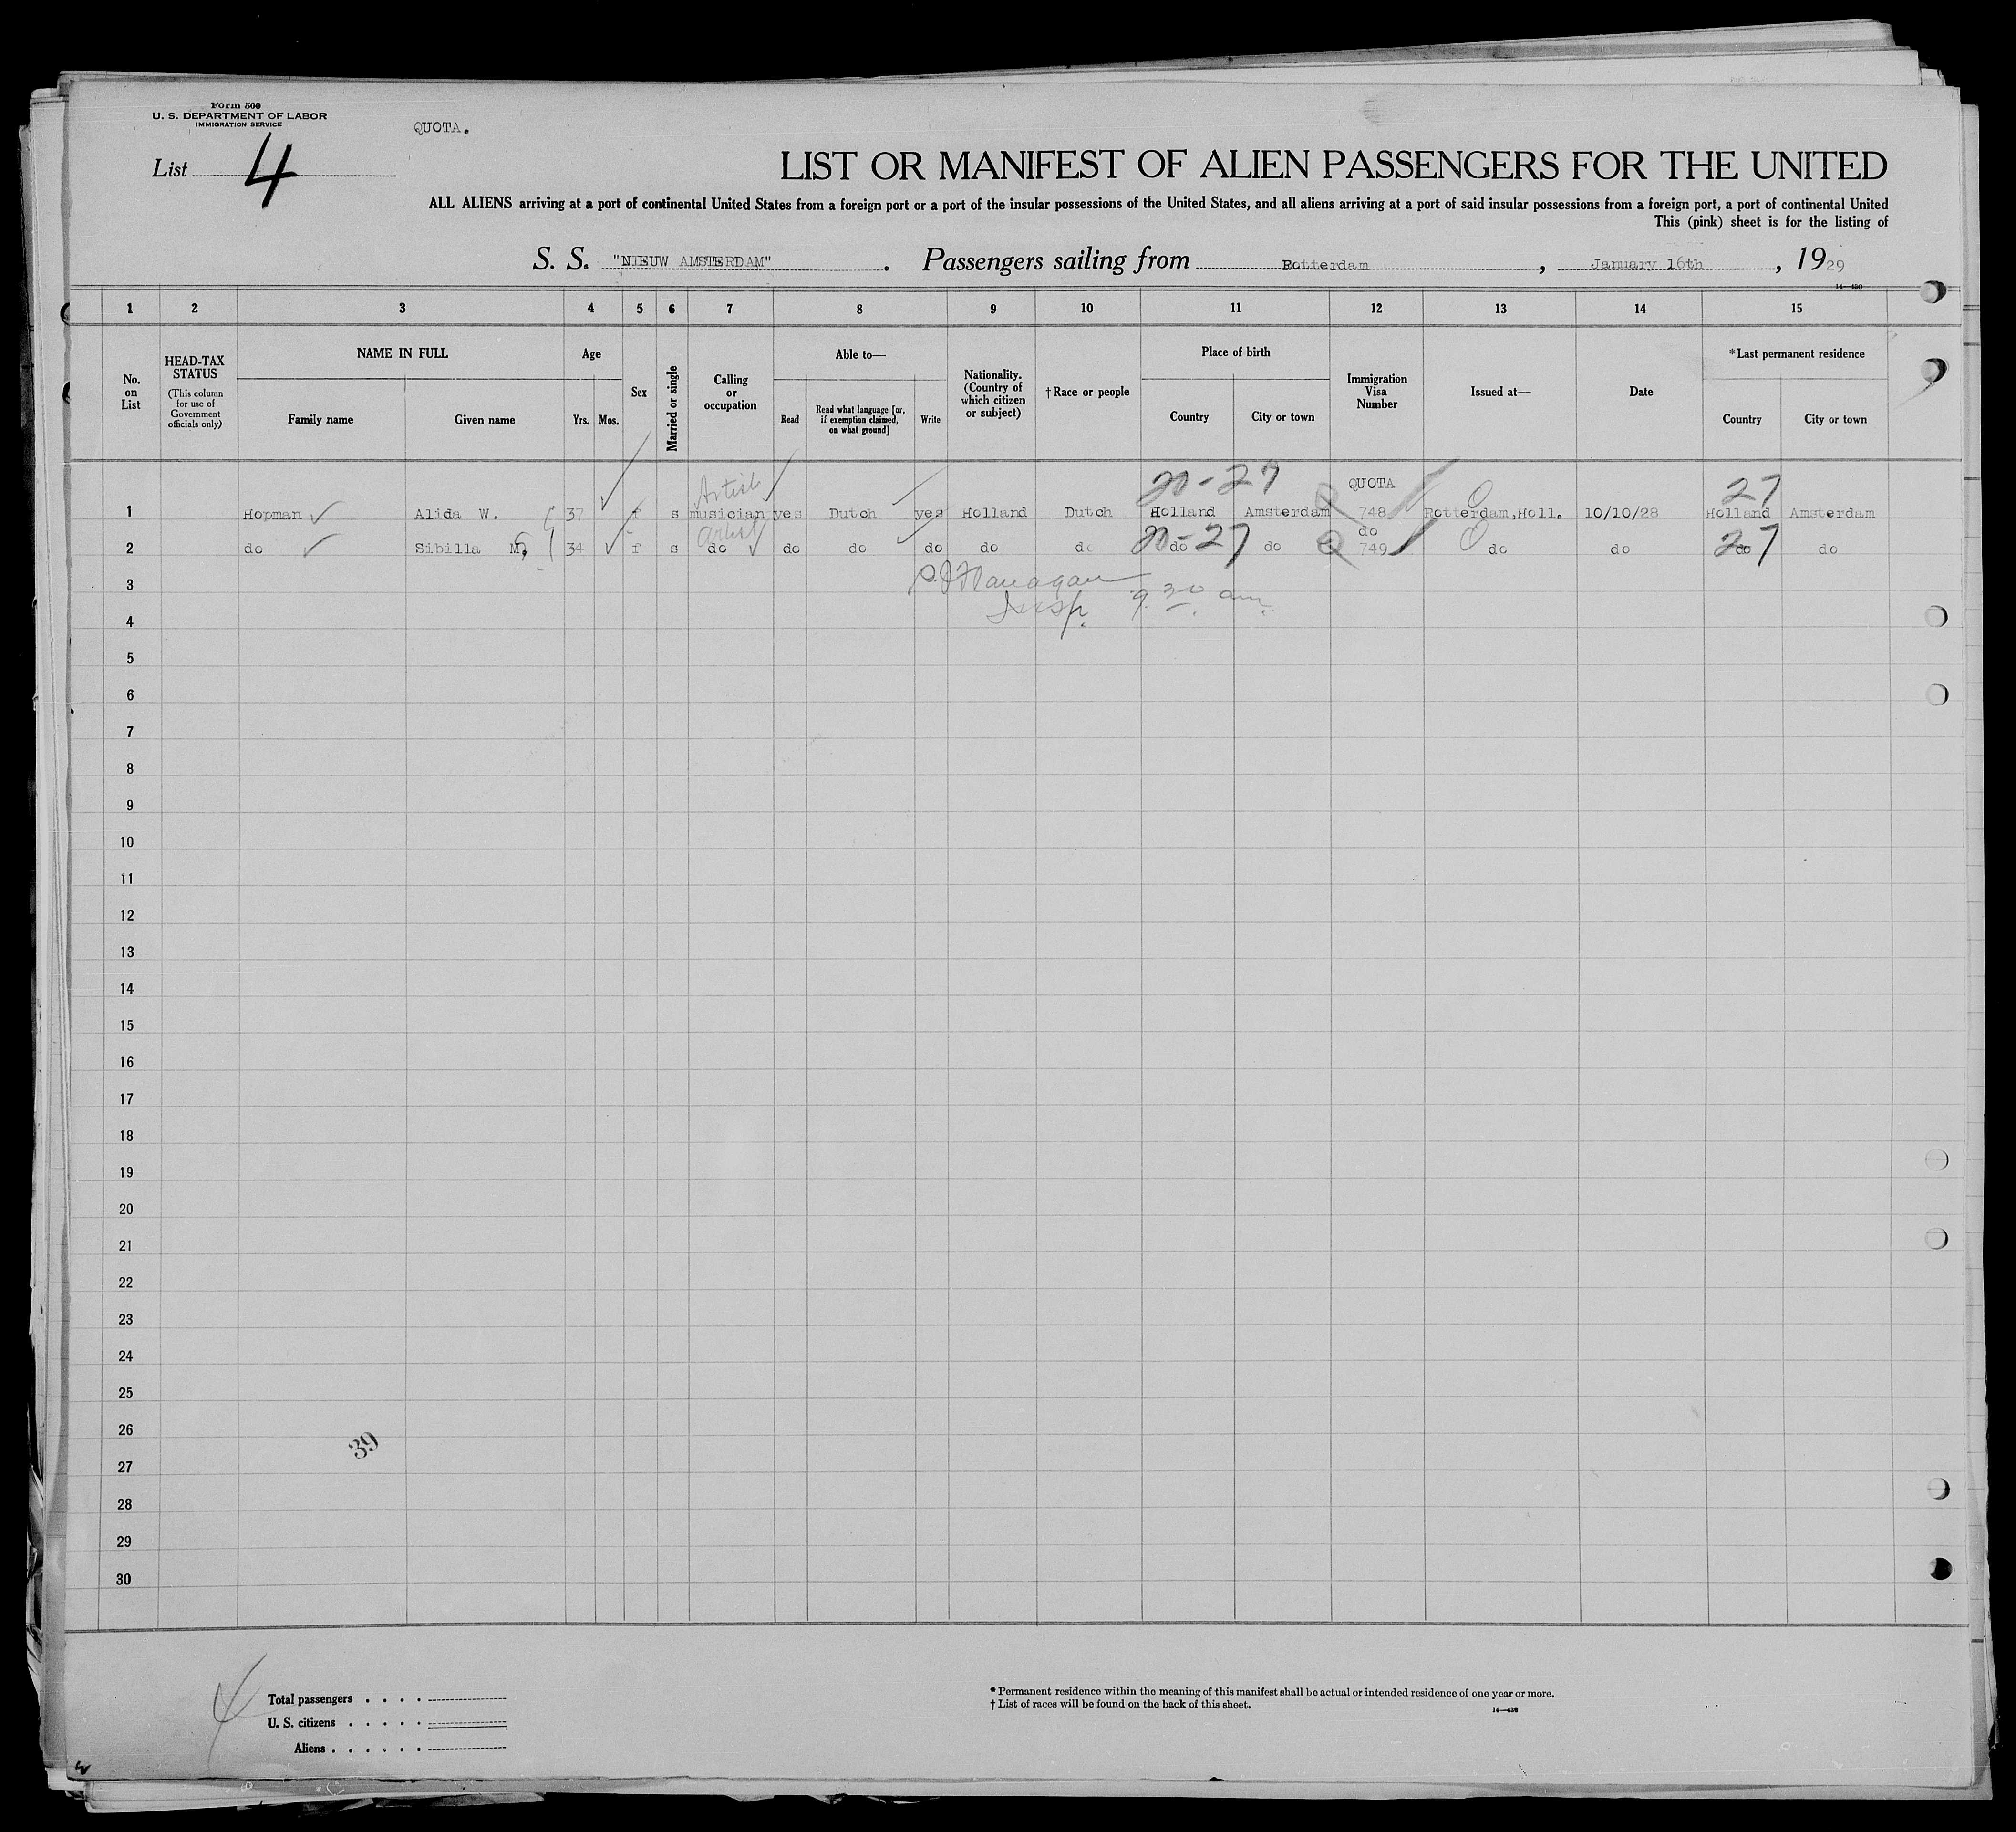 Form 500
U. S. DEPARTMENT OF LABOR
IMMIGRATION SERVICE
QUOTA.
List 4
LIST OR MANIFEST OF ALIEN PASSENGERS FOR THE UNITED
ALL ALIENS arriving at a port of continental United States from a foreign port or a port of the insular possessions of the United States, and all aliens arriving at a port of said insular possessions from a foreign port, a port of continental United
This (pink) sheet is for the listing of
S. S. "NIEUW AMSTERDAM". Passengers sailing from Rotterdam, January 16th, 1929
14—430
1 2 3 4 5 6 7 8 9 10 11 12 13 14 15
No. on List
HEAD-TAX STATUS
(This column for use of Government officials only)
NAME IN FULL
Family name Given name
Age
Yrs. Mos.
Sex
Married or single
Calling or occupation
Able to—
Read
Read what language [or, if exemption claimed, on what ground]
Write
Nationality. (Country of which citizen or subject)
†Race or people
Place of birth
Country City or town
Immigration Visa Number
Issued at—
Date
*Last permanent residence
Country City or town
Artist 20-27 QUOTA 27
1 Hopman Alida W. 37 f s musician yes Dutch yes Holland Dutch Holland Amsterdam 748 Rotterdam,Holl. 10/10/28 Holland Amsterdam
Artist 20-27 do 27
2 do Sibilla M. 34 f s do do do do do do do do 749 do do do do
3 P. J. Flanagan
4 Insp. 9.30 am.
5
6
7
8
9
10
11
12
13
14
15
16
17
18
19
20
21
22
23
24
25
26
39
27
28
29
30
Total passengers . . . .
U. S. citizens . . . . .
Aliens . . . . . .
* Permanent residence within the meaning of this manifest shall be actual or intended residence of one year or more.
† List of races will be found on the back of this sheet.
14—430